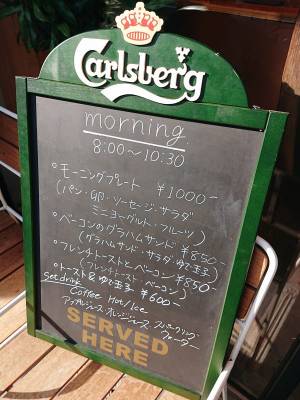 Carlsberg
morning
8:00～10:30
°モーニングプレート ¥1000-
(パン・卵・ソーセージ・サラダ
ミニヨーグルト・フルーツ)
°ベーコンのグラハムサンド ¥850-
(グラハムサンド・サラダ・ゆで玉子)
°フレンチトーストとベーコン ¥850-
(フレンチトースト ベーコン)
°トースト&ゆで玉子 ¥600-
Set drink
Coffee Hot/Ice
アップルジュース・オレンジジュース・スパークリング
ウォーター
SERVED
HERE